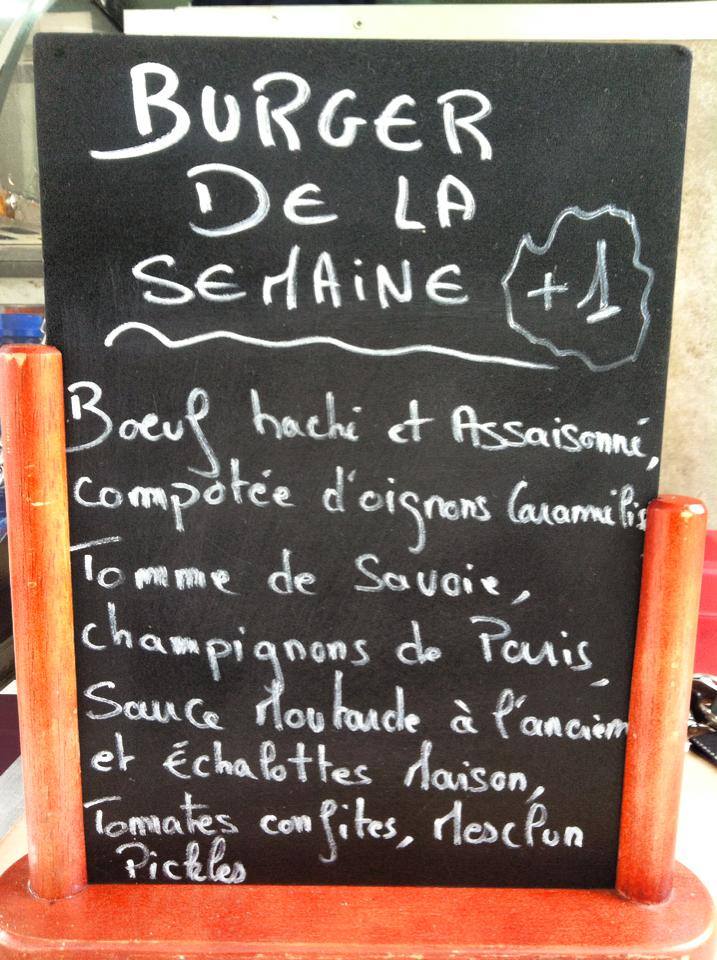 BURGER
DE LA
SEMAINE
+1
Bœuf haché et Assaisonné,
compotée d'oignons Caramélis
Tomme de Savoie,
champignons de Paris,
Sauce Moutarde à l'ancienn
et Échalottes Maison,
Tomates confites, Mesclun
Pickles